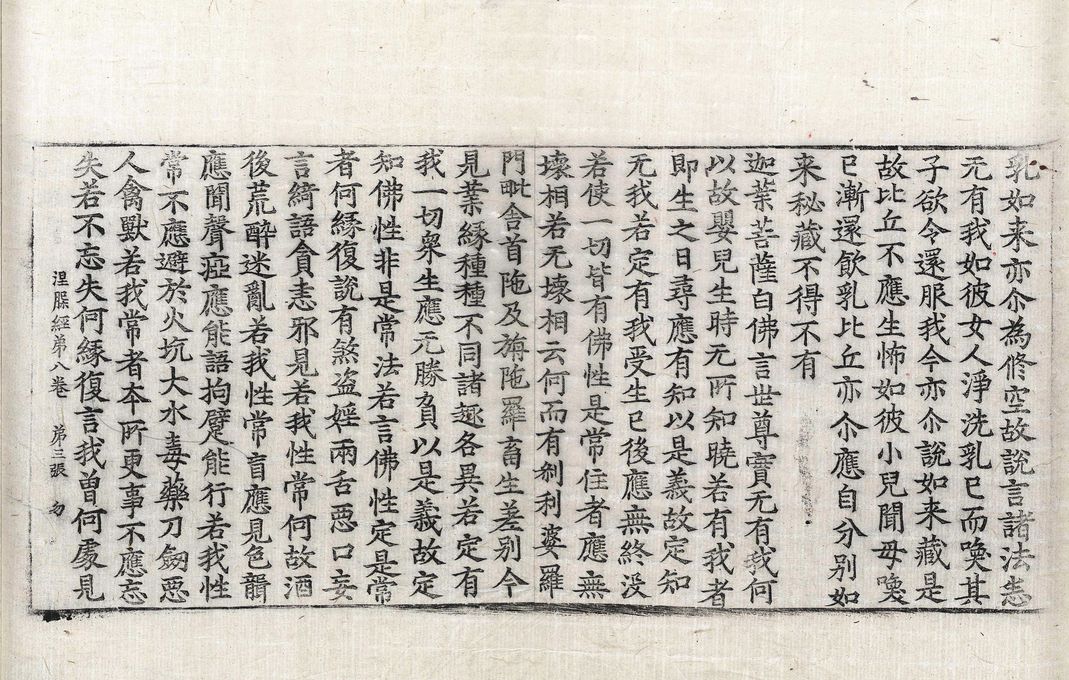 乳如来亦尒為修空故說言諸法悉
无有我如彼女人淨洗乳已而喚其
子欲令還服我今亦尒說如来藏是
故比丘不應生怖如彼小兒聞母喚
已漸還飲乳比丘亦尒應自分別如
来秘藏不得不有
迦葉菩薩白佛言世尊實无有我何
以故嬰兒生時无所知曉若有我者
即生之日尋應有知以是義故定知
无我若定有我受生已後應無終没
若使一切皆有佛性是常住者應無
壞相若无壞相云何而有刹利婆羅
門毗舍首陁及旃陁羅畜生差别今
見業緣種種不同諸趣各異若定有
我一切衆生應无勝負以是義故定
知佛性非是常法若言佛性定是常
者何緣復說有煞盗婬兩舌惡口妄
言綺語貪恚邪見若我性常何故酒
後荒醉迷亂若我性常盲應見色聾
應聞聲瘂應能語拘躄能行若我性
常不應避於火坑大水毒藥刀劒惡
人禽獸若我常者本所更事不應忘
涅槃經第八卷 第三張 勿
失若不忘失何緣復言我曾何處見